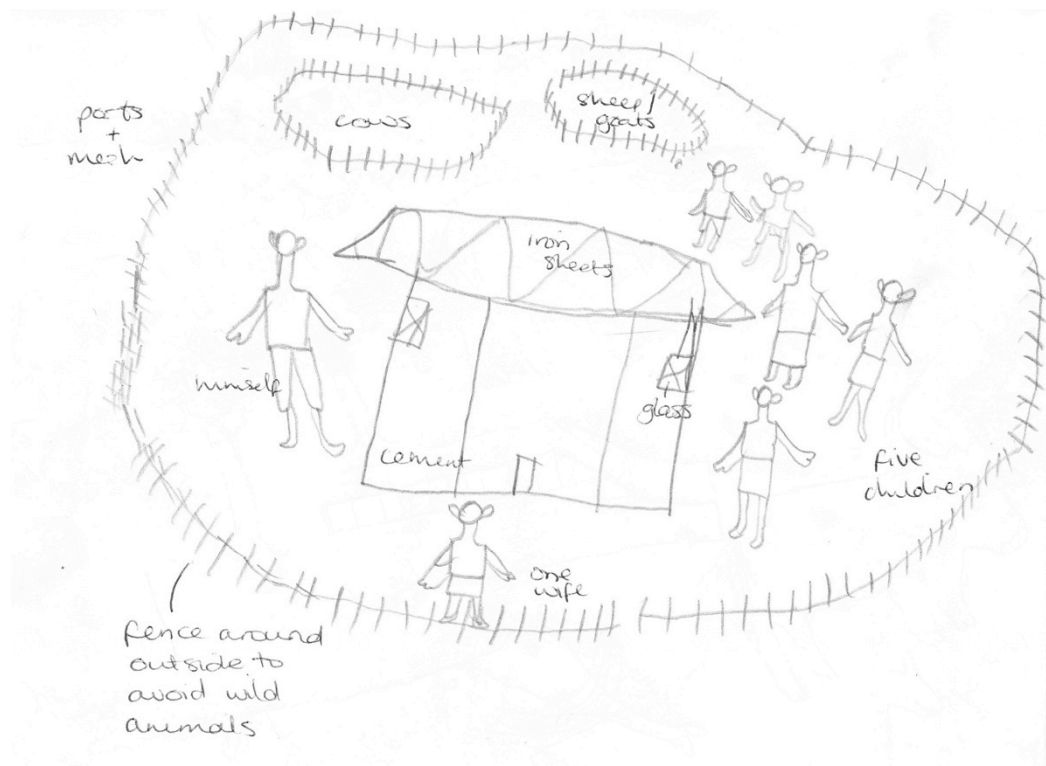 cows
sheep/
goats
posts
+
mesh
iron
sheets
himself
glass
cement
five
children
one
wife
fence around
outside to
avoid wild
animals